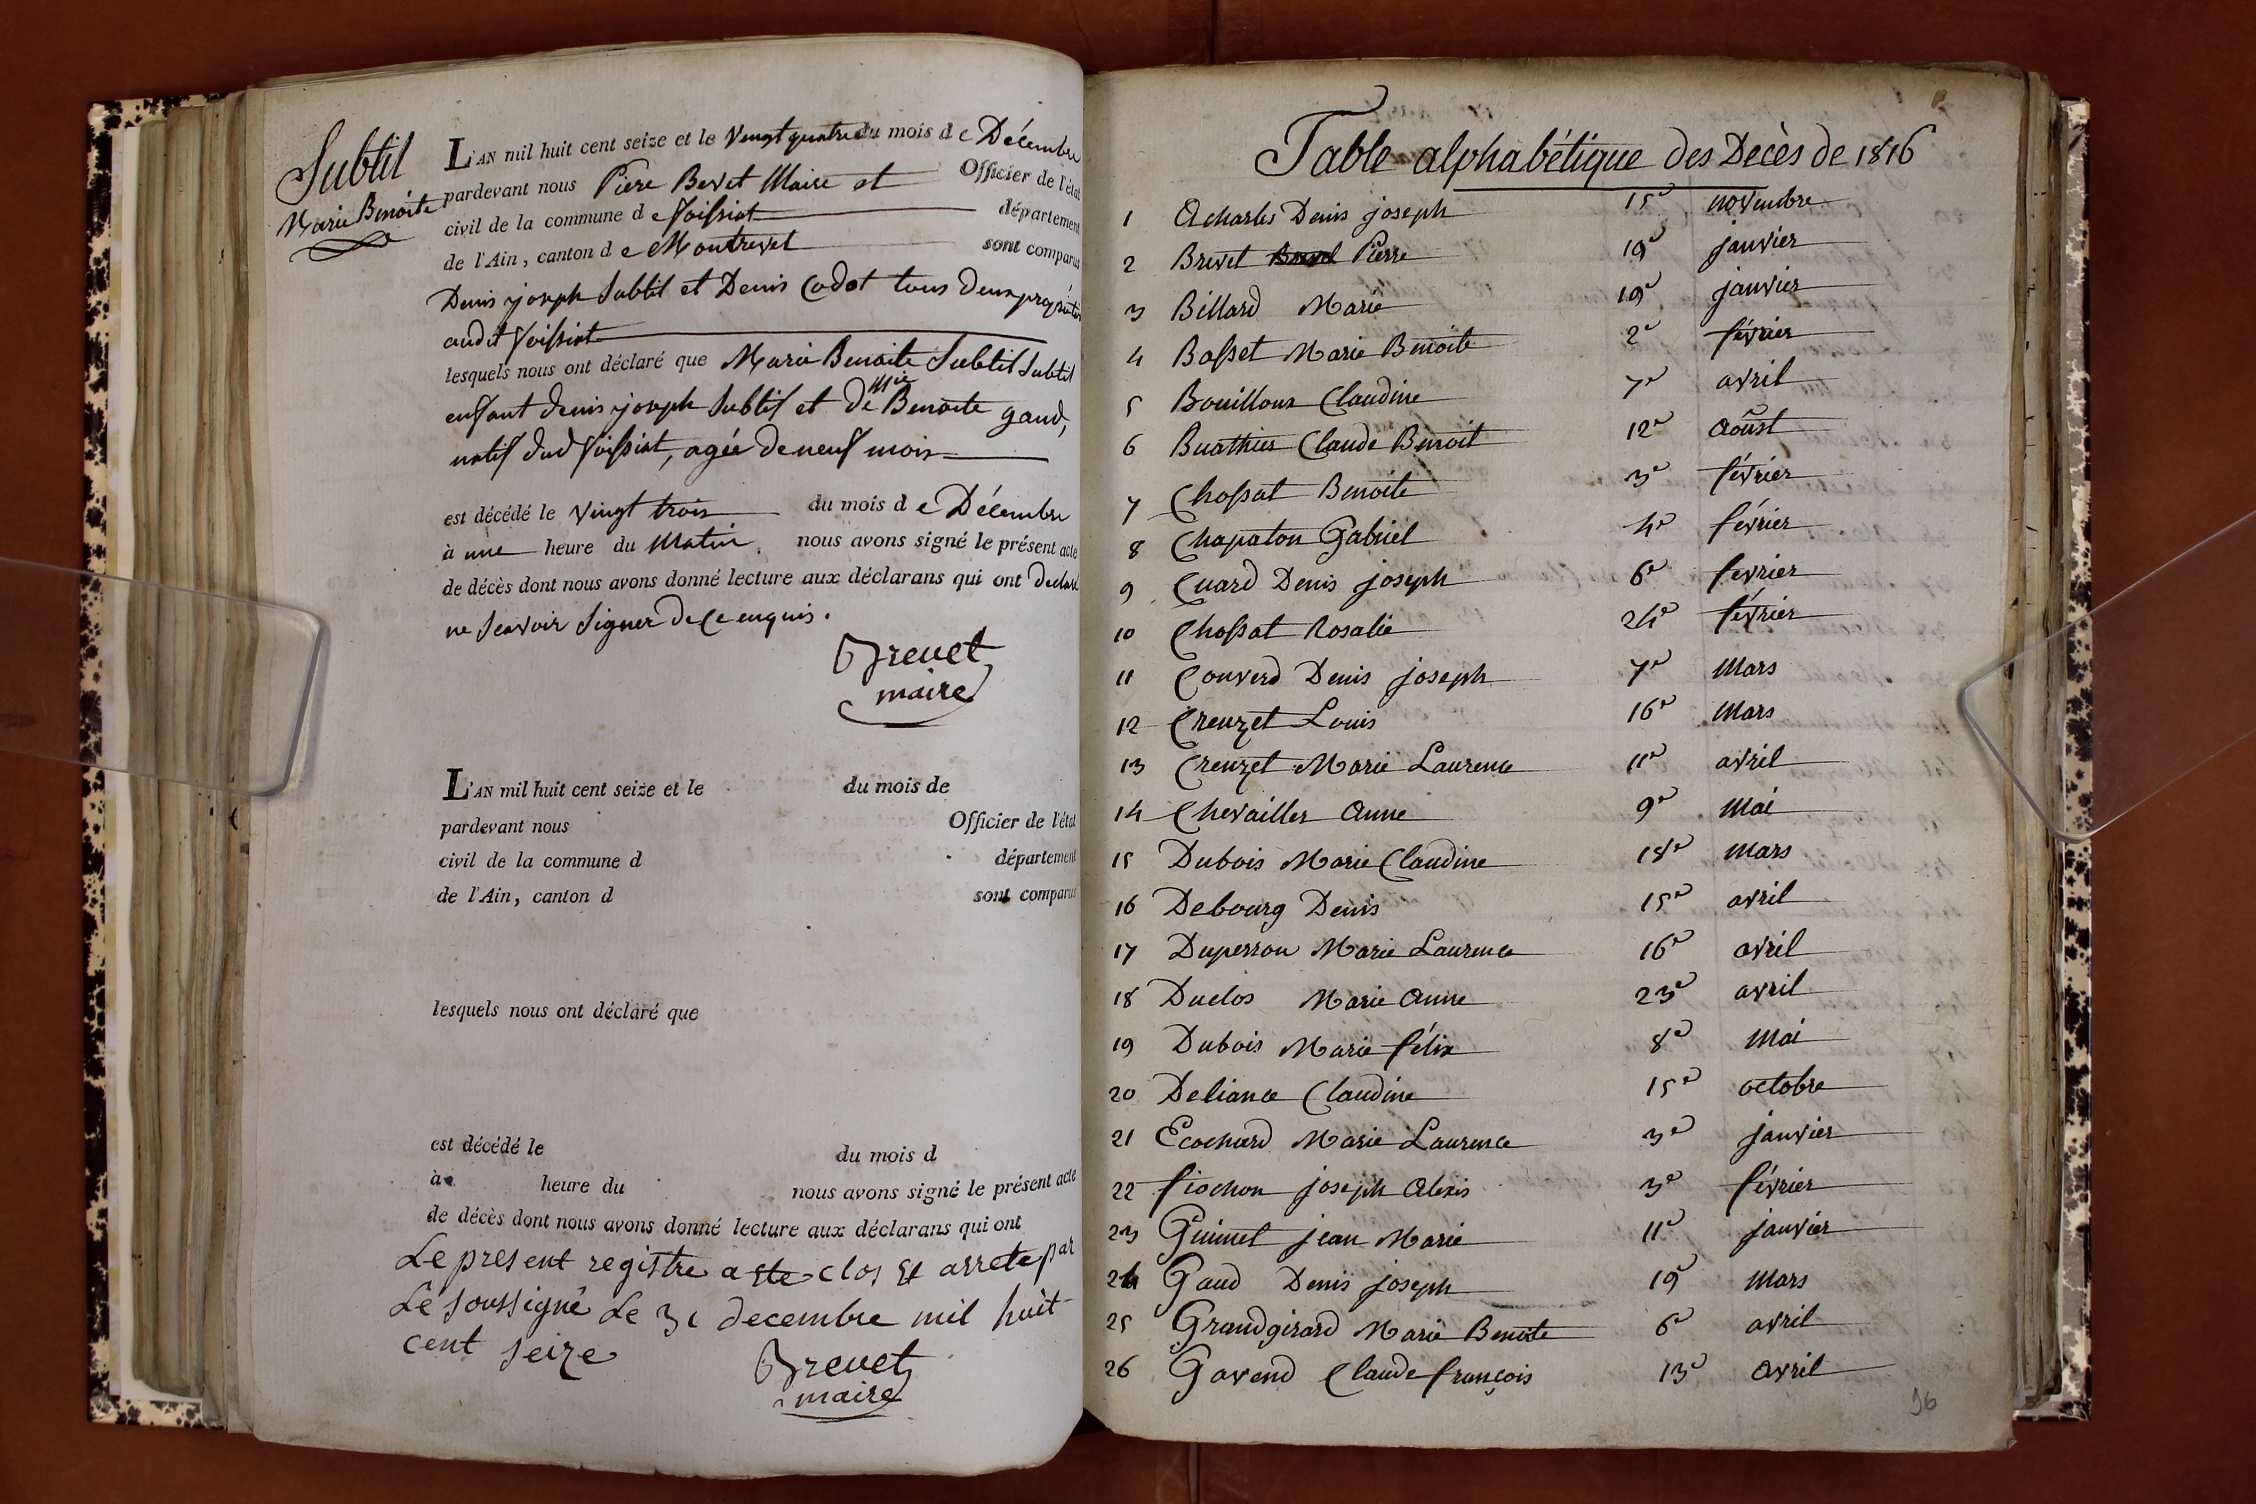 Subtil
Marie Benoite
L'AN mil huit cent seize et le Vingt quatre du mois de Décembre
pardevant nous Piere Bevet Maire et Officier de l'état
civil de la commune de foissiat département
de l'Ain, canton de Montrevel sont comparus
Denis joseph Subtil et Denis Cadot tous deux propriétai
audit foissiat
lesquels nous ont déclaré que Marie Benoite Subtil Subtil
enfant denis joseph Subtil et de Mie Benoite gaud,
natif dud foissiat, agée de neuf mois
est décédé le vingt trois du mois de Décembre
à une heure du Matin. nous avons signé le présent acte
de décès dont nous avons donné lecture aux déclarans qui ont declaré
ne scavoir signer de ce enquis.
Brevet
maire
L'AN mil huit cent seize et le du mois de
pardevant nous Officier de l'état
civil de la commune d département
de l'Ain, canton d sont comparus
lesquels nous ont déclaré que
est décédé le du mois d
à heure du nous avons signé le présent acte
de décès dont nous avons donné lecture aux déclarans qui ont
Le present registre a ete clos et arrete par
Le soussigné Le 31 decembre mil huit
cent seize
Brevet
maire
Table alphabétique des Decès de 1816
1 Acharles Denis joseph 15e novembre
2 Brevet Pierre 19e janvier
3 Billard Marie 19e janvier
4 Basset Marie Benoite 2e février
5 Bouilloux Claudine 7e avril
6 Buathier Claude Benoit 12e Aoûst
7 Chossat Benoite 3e février
8 Chapaton Gabriel 4e février
9 Cuard Denis joseph 6e fevrier
10 Chossat Rosalie 24e février
11 Converd Denis joseph 7e Mars
12 Creuzet Louis 16e Mars
13 Creuzet Marie Laurence 11e avril
14 Chevailler Anne 9e Mai
15 Dubois Marie Claudine 18e Mars
16 Debourg Denis 15e avril
17 Duperron Marie Laurence 16e avril
18 Duclos Marie Anne 23e avril
19 Dubois Marie félix 8e Mai
20 Deliance Claudine 15e octobre
21 Ecochard Marie Laurence 3e janvier
22 fiochon joseph Alexis 3e février
23 Guimet jean Marie 11e janvier
24 Gaud Denis joseph 19e Mars
25 Grandgirard Marie Benoite 6e avril
26 Gavend Claude françois 13e Avril